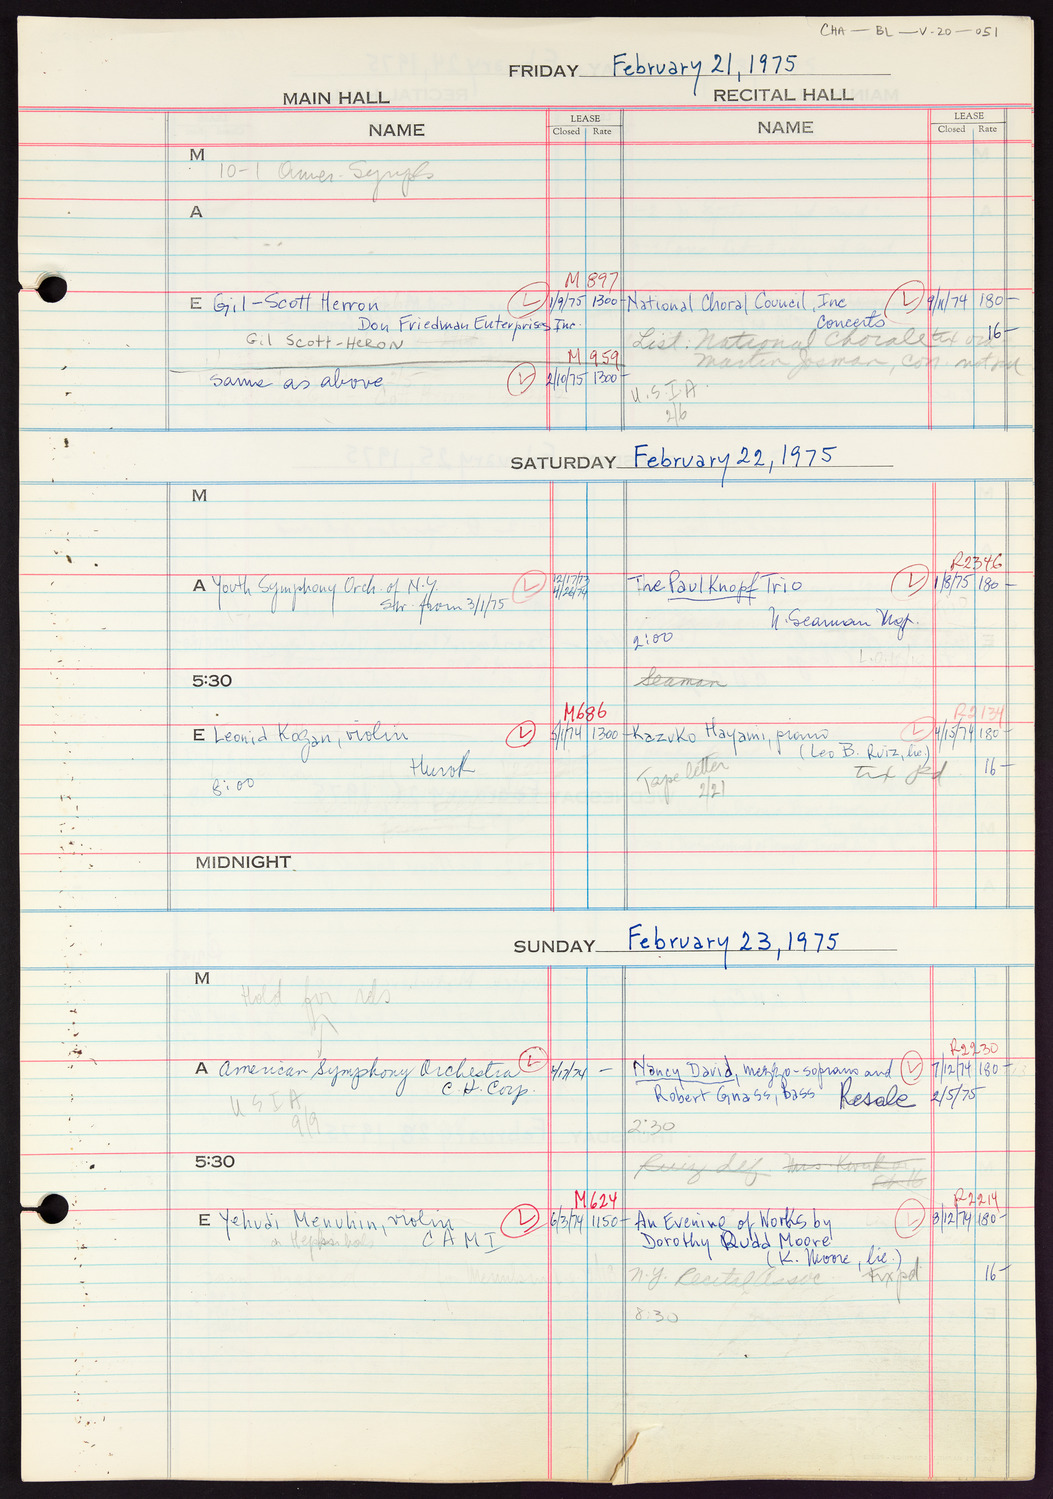 CHA — BL — V-20 — 051
FRIDAY February 21, 1975
MAIN HALL RECITAL HALL
NAME LEASE Closed Rate NAME LEASE Closed Rate
M
10-1 Amer. Symph
A
M 897
E Gil-Scott Herron L 1/9/75 1300- National Choral Council, Inc L 9/11/74 180-
Don Friedman Enterprises Inc. Concerts
Gil Scott-Heron List: National Chorale 16-
M 959 Martin Josman, con.
same as above L 2/10/75 1300- U.S.I.A.
2/6
SATURDAY February 22, 1975
M
R2346
A Youth Symphony Orch. of N.Y. L 12/17/73 The Paul Knopf Trio L 1/8/75 180-
from 3/1/75 4/26/74
N. Seaman Mgr.
2:00
5:30 Seaman
M686 R2134
E Leonid Kogan, violin L 5/1/74 1300- Kazuko Hayami, piano L 4/15/74 180-
Hurok (Leo B. Ruiz, lic.)
8:00 Tape letter 2/21 16-
MIDNIGHT
SUNDAY February 23, 1975
M
Hold for rds
R2230
A American Symphony Orchestra L 4/17/74 - Nancy David, mezzo-soprano and L 7/12/74 180-
C.H. Corp. Robert Gnass, bass Resale 2/5/75
USIA
9/9 2:30
5:30 Ruiz
M624 R2214
E Yehudi Menuhin, violin L 6/3/74 1150- An Evening of Works by L 8/12/74 180-
CAMI Dorothy Rudd Moore
(K. Moore, lic.)
N.Y. Recital Assoc txpd 16-
8:30